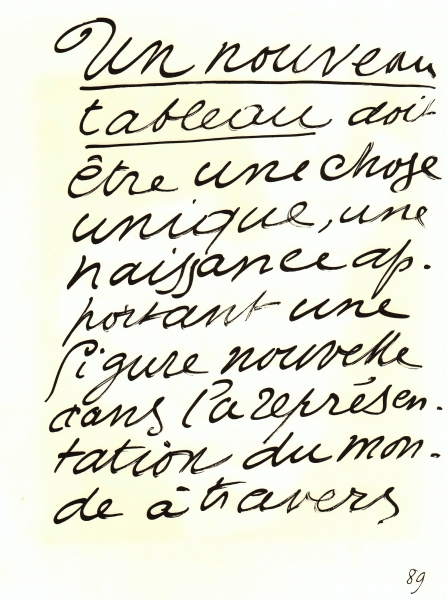 Un nouveau
tableau doit
être une chose
unique, une
naissance ap-
portant une
figure nouvelle
dans la représen-
tation du mon-
de à travers
89